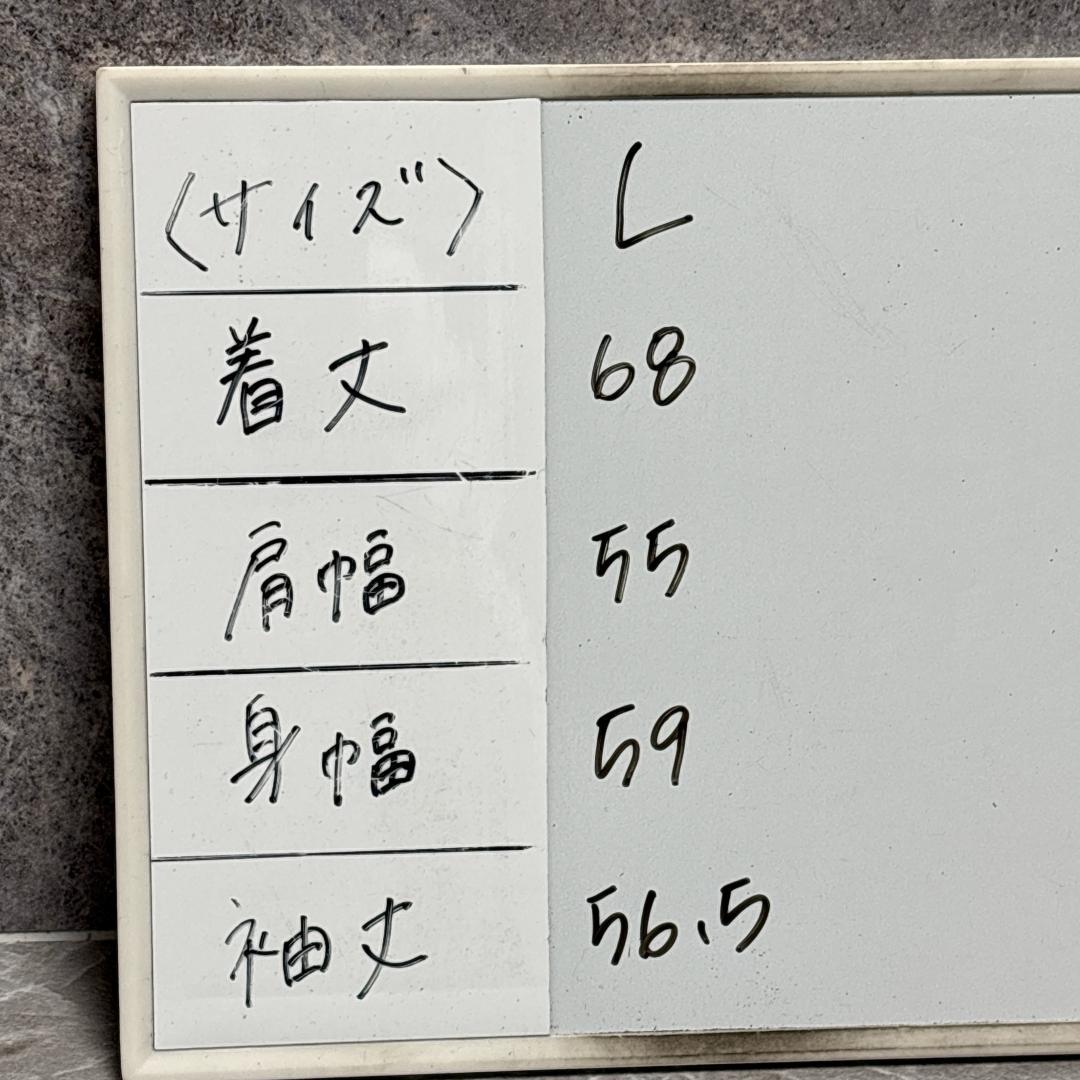 〈サイズ〉 L
着丈 68
肩幅 55
身幅 59
袖丈 56.5